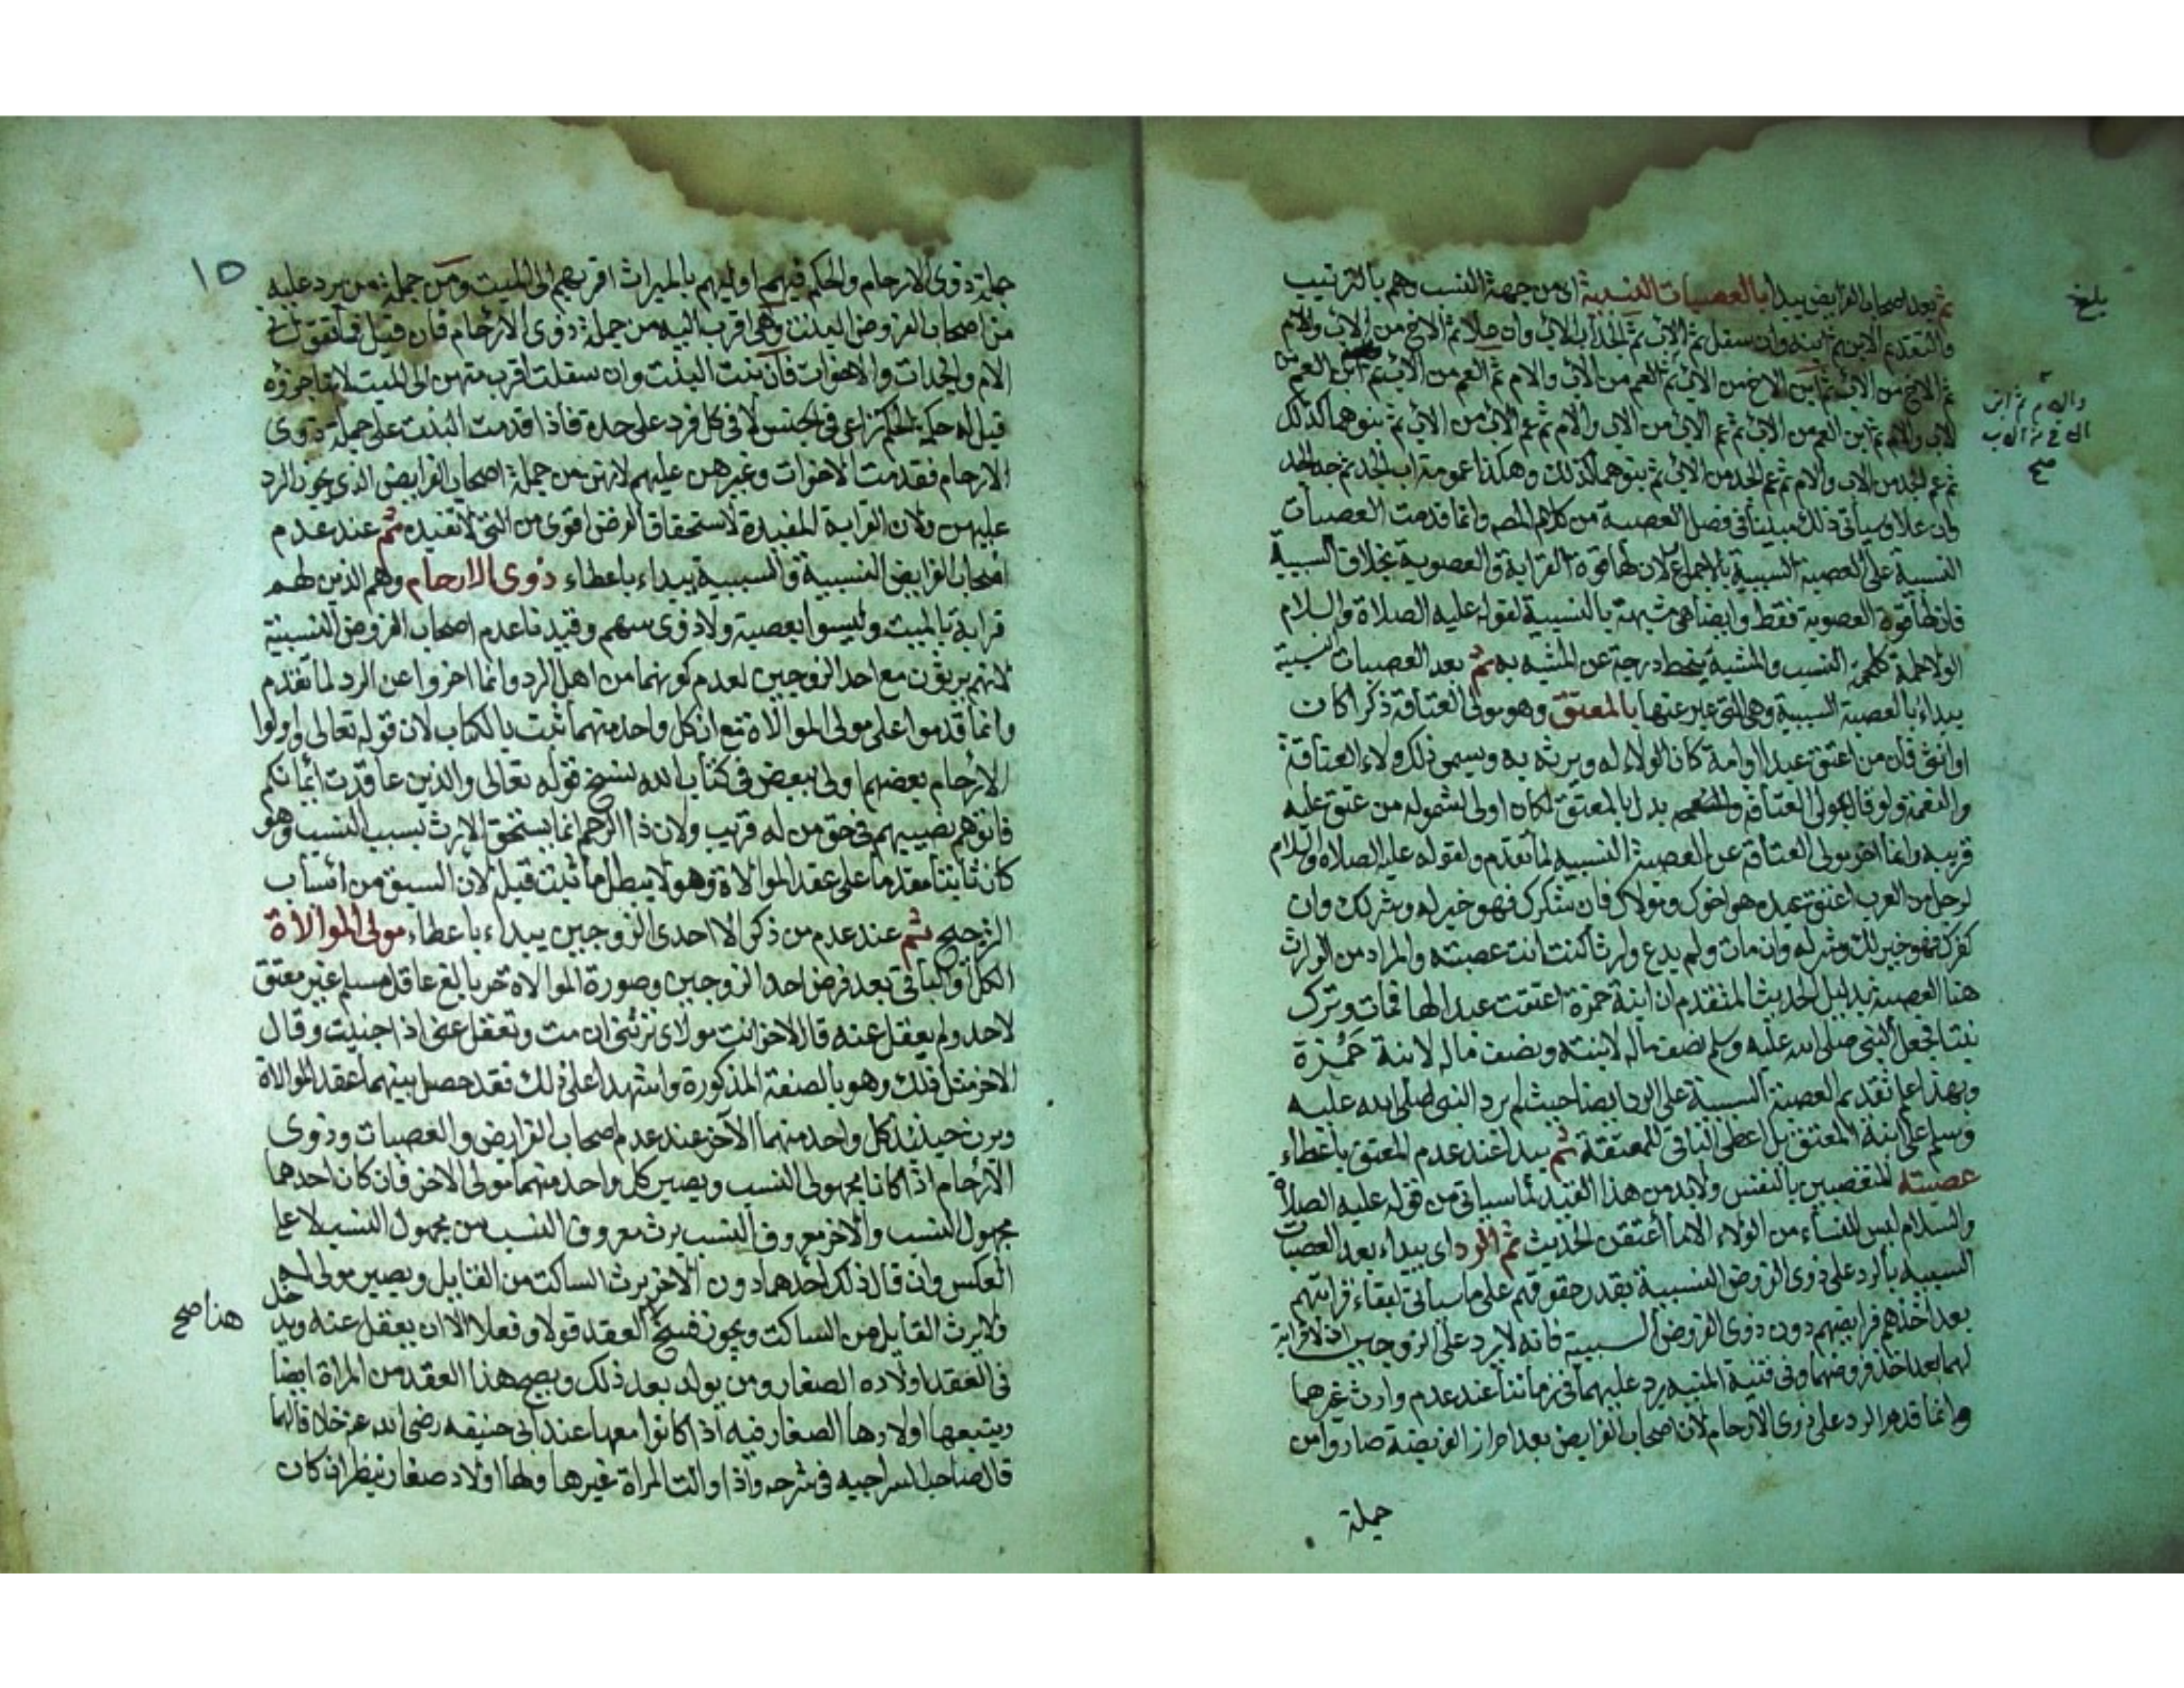 ثم بعد اصحاب الفرايض يبدا بالعصبات النسبية اى من جهة النسب وهم بالترتيب
والتقديم الابن ثم ابنه وان سفل ثم الاب ثم الجد اب الاب وان علا ثم الاخ من الاب والام
ثم الاخ من الاب ثم ابن الاخ من الاب ثم العم من الاب والام ثم العم من الاب ثم ابن العم من
الاب والام ثم ابن العم من الاب ثم عم الاب من الاب والام ثم عم الاب من الاب ثم بنوهما كذلك
ثم عم الجد من الاب والام ثم عم الجد من الاب ثم بنوهما كذلك وهكذا عمومة اب الجد ثم جد الجد
وان علا وسياتى ذلك مبينا فى فصل العصبة من كلام المص وانما قدمت العصبات
النسبية على العصبة السببية بالاجماع لان لها قوة القرابة والعصوبة بخلاف السببية
فان لها قوة العصوبة فقط وايضا هى مشبهة بالنسبية لقوله عليه الصلاة والسلام
الولا لحمة كلحمة النسب والمشبه ينحط درجة عن المشبه به ثم بعد العصبات النسبية
يبداء بالعصبة السببية وهى التى عبر عنها بالمعتق وهو مولى العتاقة ذكرا كان
او انثى فان من اعتق عبدا او امة كان الولاء له ويرثه به ويسمى ذلك ولاء العتاقة
والنعمة ولو قال مولى العتاقة بدل بالمعتق لكان اولى لشموله من عتق عليه
قريبه وانما اخر مولى العتاقة عن العصبة النسبية لما تقدم ولقوله عليه الصلاة والسلام
لرجل من العرب اعتق عبده هو اخوك ومولاك فان شكرك فهو خير له وشر لك وان
كفرك فهو خير لك وشر له وان مات ولم يدع وارثا كنت انت عصبته والمراد من الوارث
هنا العصبة بدليل الحديث المتقدم ان ابنة حمزة اعتقت عبدا لها فمات وترك
بنتا فجعل النبى صلى الله عليه وسلم نصف ماله لابنته ونصف ماله لابنة حمزة
وبهذا علم تقديم العصبة السببية على الرد ايضا حيث لم يرد النبى صلى الله عليه
وسلم على ابنة المعتق بل اعطى الباقى للمعتقة ثم يبدا عند عدم المعتق باعطاء
عصبته المتعصبين بالنفس ولابد من هذا القيد لما سياتى من قوله عليه الصلاة
والسلام ليس للنساء من الولاء الا ما اعتقن الحديث ثم الرد اى يبداء بعد العصبات
السببية بالرد على ذوى الفروض النسبية بقدر حقوقهم على ما سياتى لبقاء قرابتهم
بعد اخذهم فرايضهم دون ذوى الفروض السببية فانه لا يرد على الزوجين اذ لا قرابة
لهما بعد اخذ فروضهما وفى قنية المنية يرد عليهما فى زماننا عند عدم وارث غيرهما
وانما قدم الرد على ذوى الارحام لان اصحاب الفرايض بعد احراز الفريضة صاروا من
جملة
بلغ
والام ثم ابن
الاخ من الاب
صح
١٥
جملة ذوى الارحام والحكم فيهم اوليهم بالميراث اقربهم الى الميت ومن جملة من يرد عليه
من اصحاب الفروض البنت وهى اقرب اليه من جملة ذوى الارحام فان قيل
الام والجدات والاخوات فان بنت البنت وان سفلت اقرب منهن الى الميت لانها جزؤه
قيل له حكمة الحكم تراعى فى الجنس لا فى كل فرد على حدة فاذا قدمت البنت على جملة ذوى
الارحام فقدمت الاخوات وغيرهن عليهم لانهن من جملة اصحاب الفرايض الذى يجوز الرد
عليهن ولان القرابة المفيدة لاستحقاق الفرض اقوى من التى لا تفيده ثم عند عدم
اصحاب الفرايض النسبية والسببية يبداء باعطاء ذوى الارحام وهم الذين لهم
قرابة بالميت وليسوا بعصبة ولا ذوى سهم وقيدنا عدم اصحاب الفروض النسبية
لانهم يرثون مع احد الزوجين لعدم كونهما من اهل الرد وانما اخروا عن الرد لما تقدم
وانما قدموا على مولى الموالاة مع ان كل واحد منهما ثبت بالكتاب لان قوله تعالى واولوا
الارحام بعضهم اولى ببعض فى كتاب الله نسخ قوله تعالى والذين عاقدت ايمانكم
فاتوهم نصيبهم فى حق من له قريب ولان ذا الرحم انما يستحق الارث بسبب النسب وهو
كان ثابتا مقدما على عقد الموالاة وهو لا يبطل ما ثبت قبله لان السبق من اسباب
الترجيح ثم عند عدم من ذكر الا احدى الزوجين يبداء باعطاء مولى الموالاة
الكل او الباقى بعد فرض احد الزوجين وصورة الموالاة حر بالغ عاقل مسلم غير معتق
لاحد ولم يعقل عنه قال لاخر انت مولاى ترثنى ان مت وتعقل عنى اذا جنيت وقال
الاخر مثل ذلك وهو بالصفة المذكورة واشهدا على ذلك فقد حصل بينهما عقد الموالاة
ويرث حينئذ كل واحد منهما الاخر عند عدم اصحاب الفرايض والعصبات وذوى
الارحام اذا كانا مجهولى النسب ويصير كل واحد منهما مولى الاخر فان كان احدهما
مجهول النسب والاخر معروف النسب يرث معروف النسب من مجهول النسب لا على
العكس وان قال ذلك احدهما دون الاخر يرث الساكت من القايل ويصير مولى له
ولا يرث القايل من الساكت ويجوز فسخ العقد قولا وفعلا الا ان يعقل عنه ويدخل
فى العقد اولاده الصغار ومن يولد بعد ذلك ويصح هذا العقد من المراة ايضا
ويتبعها اولادها الصغار فيه اذا كانوا معها عند ابى حنيفه رضى الله عنه خلافا لهما
قال صاحب السراجيه فى شرحه واذا والت المراة غيرها ولها اولاد صغار ينظر ان كان
هذا صح